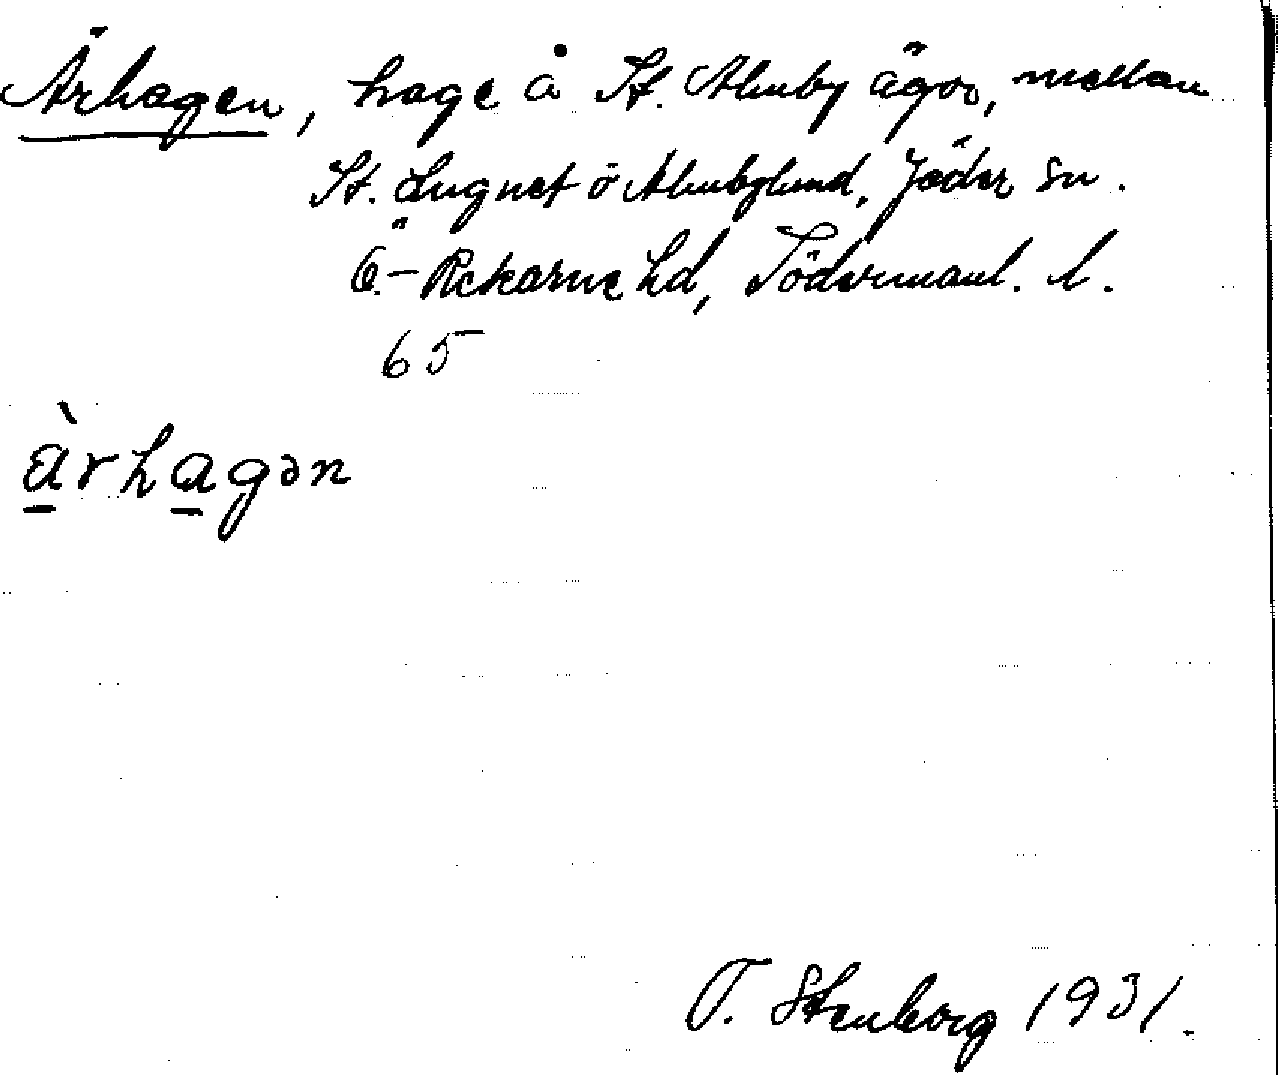 Ärhagen, hage å St. Åhuby ägor, mellan
St. Lugnet o Åhubylund, Jäder sn.
Ö.-Rekarne hd, Södermanl. l.
65
àrhagən
T. Stenborg 1931.